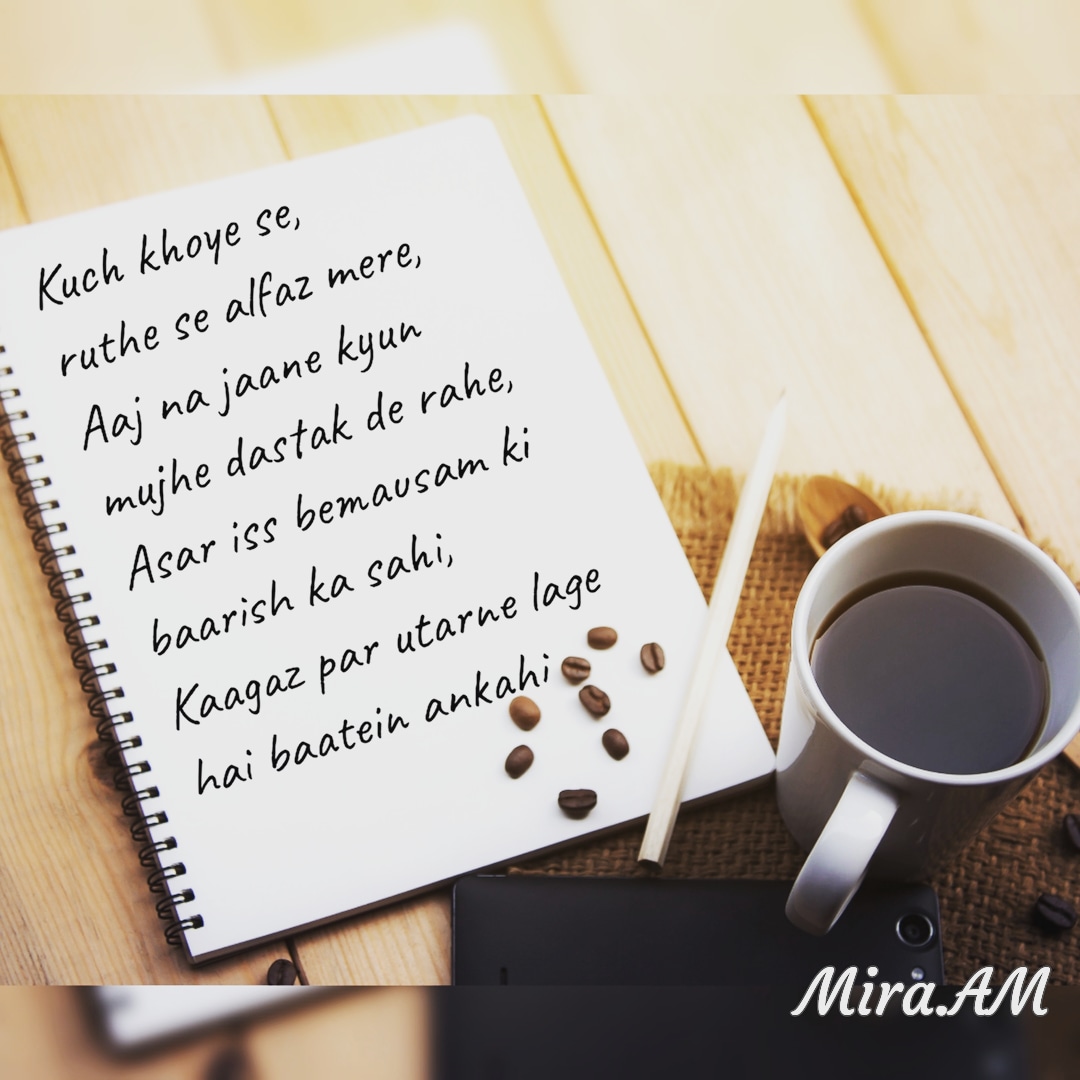 Kuch khoye se,
ruthe se alfaz mere,
Aaj na jaane kyun
mujhe dastak de rahe,
Asar iss bemausam ki
baarish ka sahi,
Kaagaz par utarne lage
hai baatein ankahi
Mira.AM